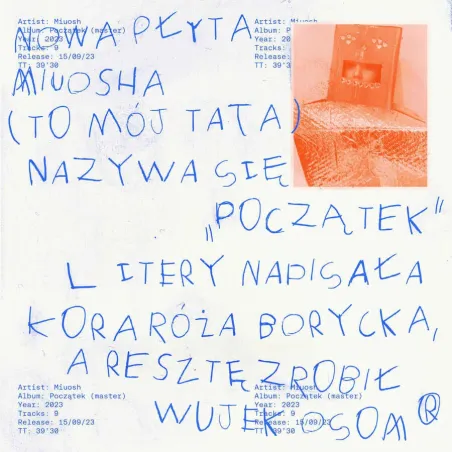 Artist: Miuosh
Album: Początek (master)
Year: 2023
Tracks:
Release: 15/09/23
TT: 39'30
Artist: Miuosh
Album: P
Year: 20
Tracks:
Release:
TT: 39'3
NOWA PŁYTA
MIUOSHA
(TO MÓJ TATA)
NAZYWA SIĘ
„POCZĄTEK”
LITERY NAPISAŁA
KORA RÓŻA BORYCKA,
A RESZTĘ ZROBIŁ
WUJEK OSOM ®
Artist: Miuosh
Album: Początek (master)
Year: 2023
Tracks: 9
Release: 15/09/23
TT: 39'30
Artist: Miuosh
Album: Początek (master)
Year: 2023
Tracks: 9
Release: 15/09/23
TT: 39'30